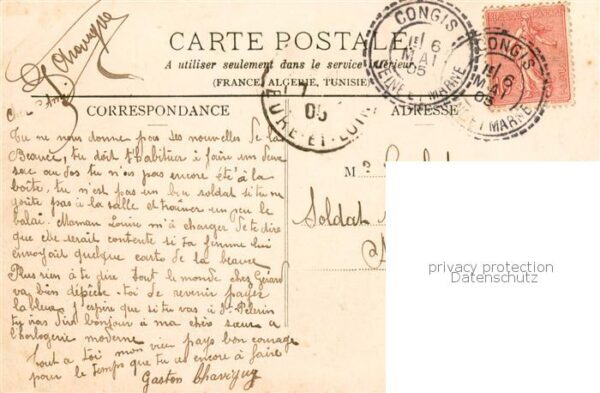 CARTE POSTALE
A utiliser seulement dans le service intérieur
(FRANCE, ALGERIE, TUNISIE)
CORRESPONDANCE
ADRESSE
CONGIS
6
MAI
05
SEINE ET MARNE
CONGIS
6
MAI
05
SEINE ET MARNE
7
05
EURE-ET-LOIR
Tu ne nous donne pas des nouvelles de la
Beauce, tu doit t'habituer à faire un
sac au dos tu n'as pas encore été à la
boîte, tu n'est pas un bon soldat si tu ne
goûte pas à la salle et traîner un peu le
balai. Maman Louise m'a charger de te dire
que elle serait contente si ta femme lui
envoyait quelque carte de la beauce
Plus rien à te dire tout le monde chez Gérard
va bien dépêche-toi de revenir payer
la bleue, j'espère que si tu vas à St Pelerin
tu iras dire bonjour à ma chère sœur a
l'horlogerie moderne
Tout a toi mon vieu pays bon courage
pour le temps que tu as encore à faire
Gaston
M
Soldat
privacy protection
Datenschutz